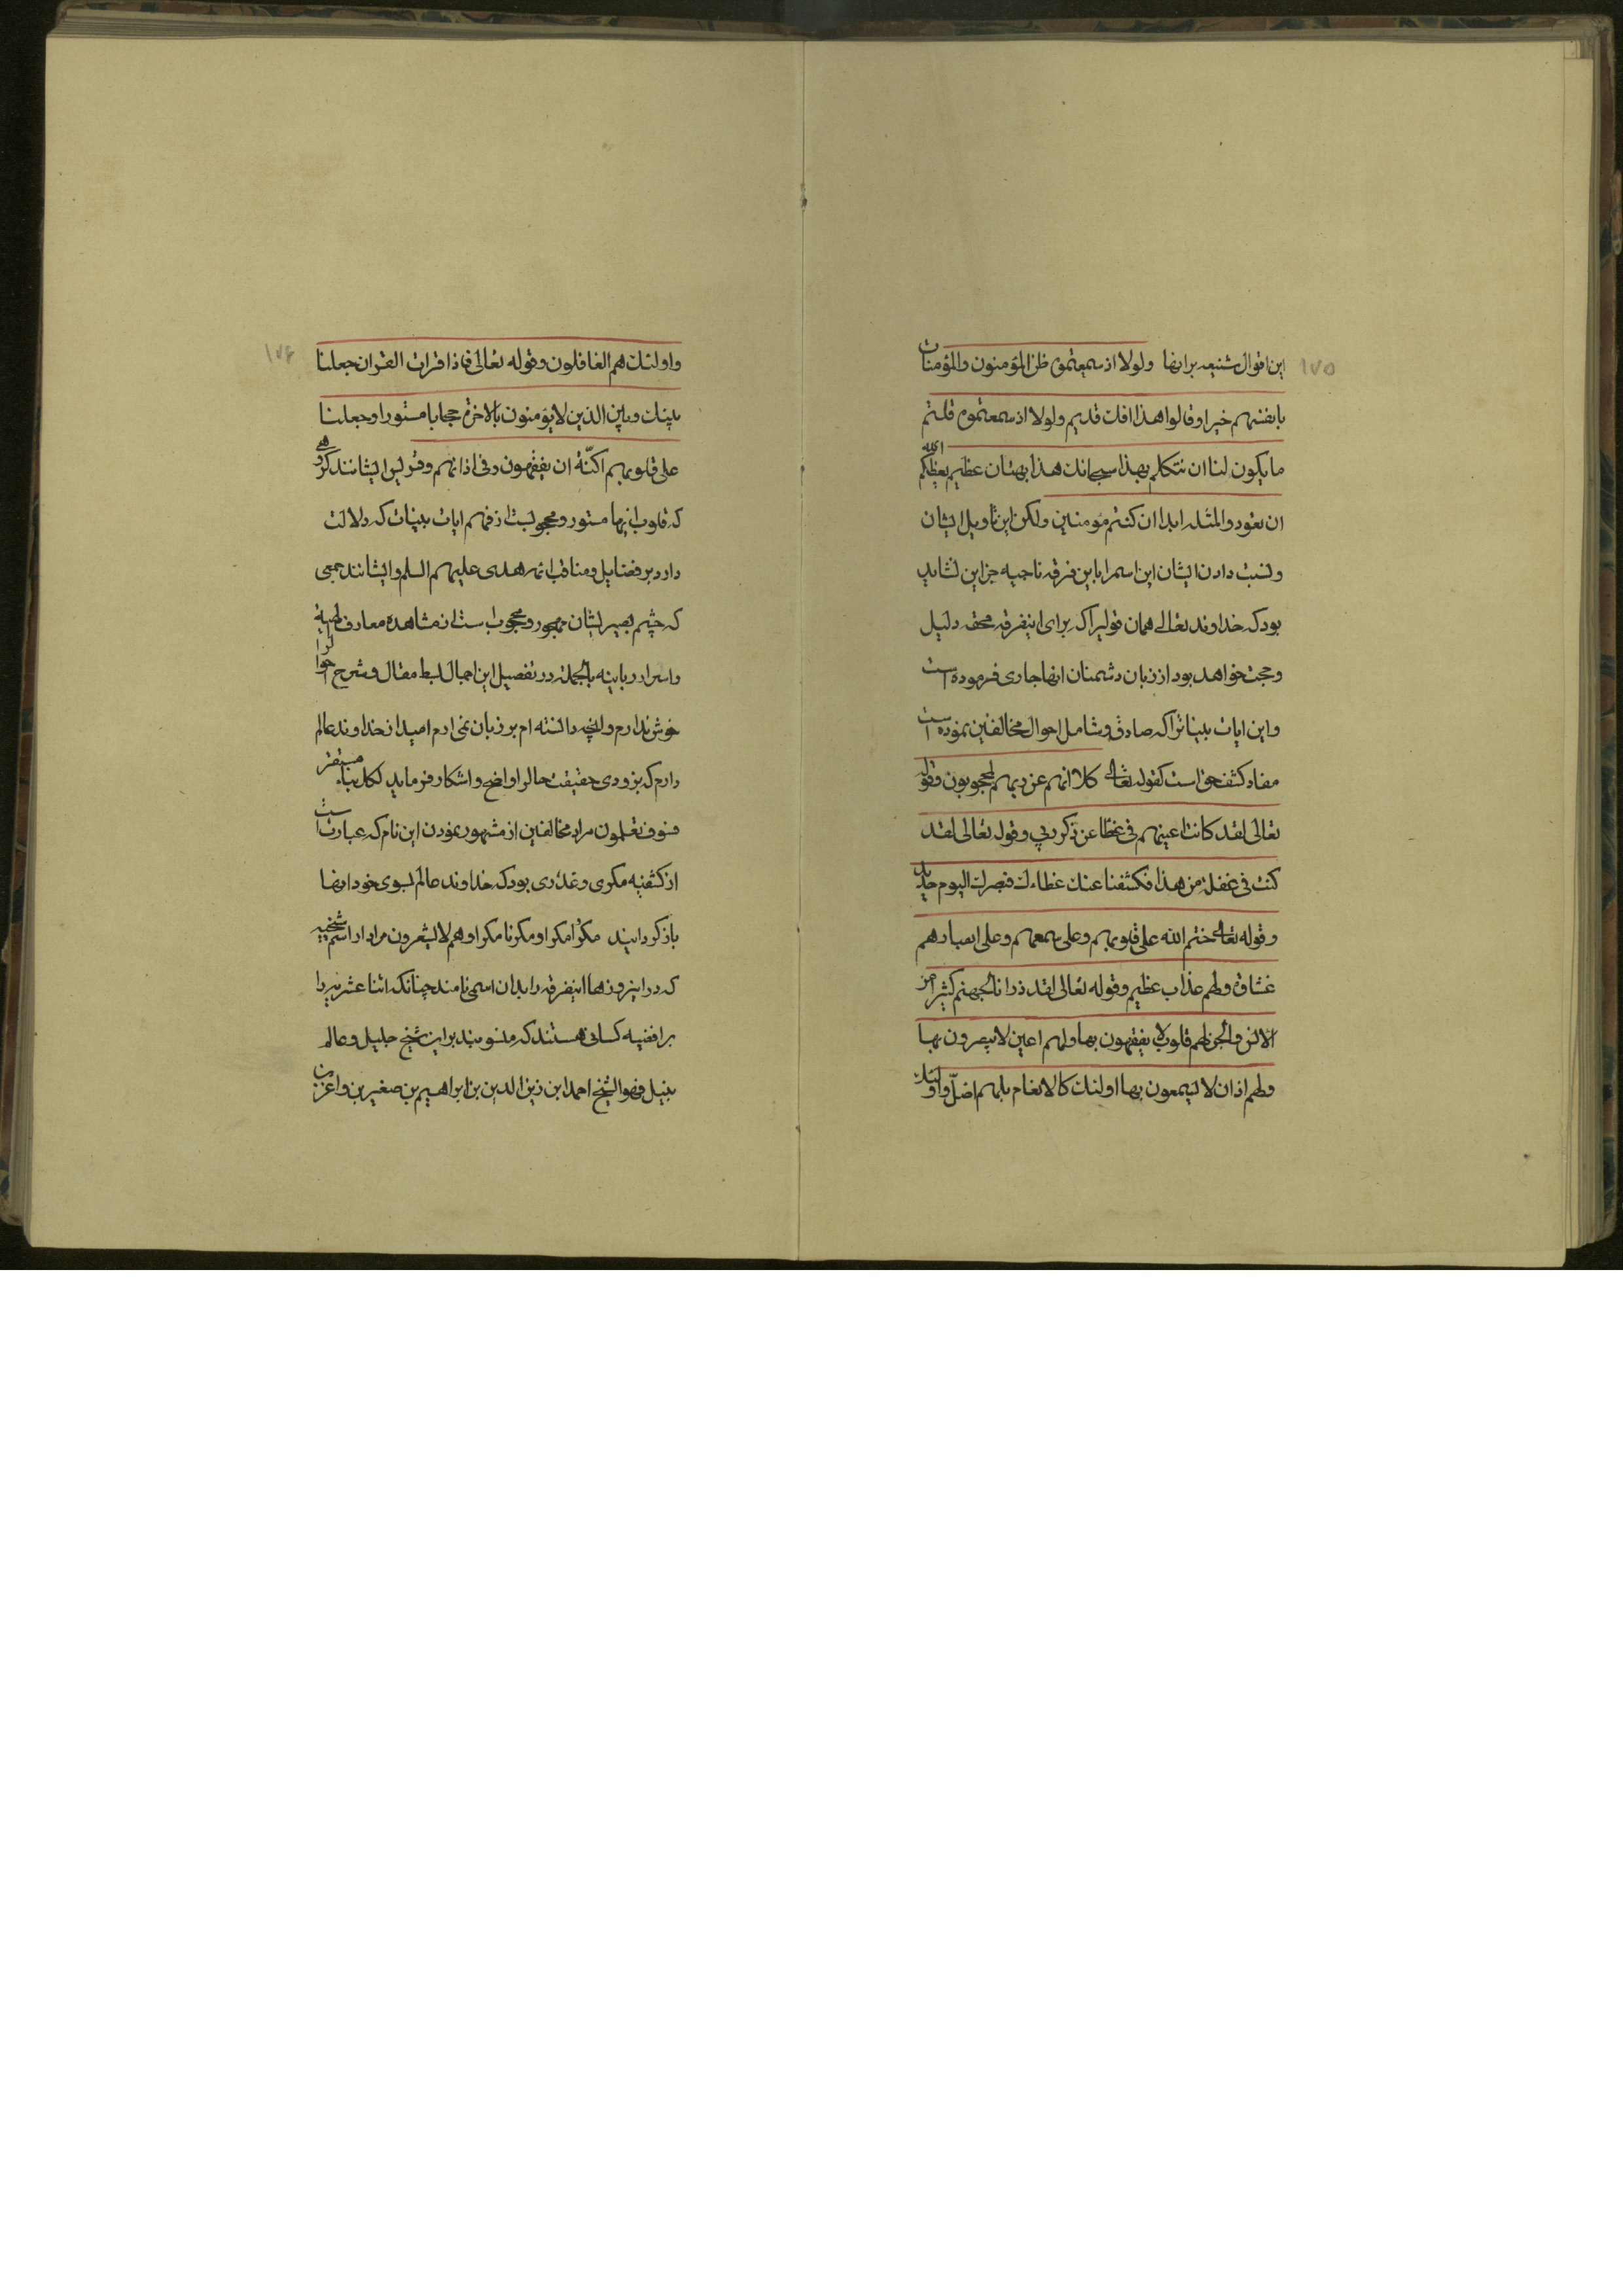 ۱۷۵
این اقوال شنیعه برانها ولولا اذ سمعتموه ظن المؤمنون والمؤمنات
بانفسهم خیرا وقالوا هذا افك قدیم ولولا اذ سمعتموه قلتم
ما یكون لنا ان نتكلم بهذا سبحانك هذا بهتان عظیم یعظكم الله
ان تعودوا لمثله ابدا ان كنتم مؤمنین ولكن این تاویل ایشان
ونسبت دادن ایشان این اسم را باین فرقه ناجیه جز این نشاید
بود كه خداوند تعالی همان قولیرا كه برای اینفرقه محقه دلیل
وحجت خواهد بود از زبان دشمنان انها جاری فرموده است
واین ایات بینات را كه صادق وشامل احوال مخالفین نموده است
مفاد كشف حق است كقوله تعالی كلا انهم عن ربهم لمحجوبون وقوله
تعالی لقد كانت اعینهم فی غطا عن ذكر ربی وقوله تعالی لقد
كنت فی غفلة من هذا فكشفنا عنك غطاءك فبصرك الیوم حدید
وقوله تعالی ختم الله علی قلوبهم وعلی سمعهم وعلی ابصارهم
غشاوة ولهم عذاب عظیم وقوله تعالی لقد ذرانا لجهنم كثیرا من
الانس والجن لهم قلوب لا یفقهون بها ولهم اعین لا یبصرون بها
ولهم اذان لا یسمعون بها اولئك كالانعام بل هم اضلّ واولئك
۱۷۶
واولئك هم الغافلون وقوله تعالی فاذا قرات القران جعلنا
بینك وبین الذین لا یؤمنون بالاخرة حجابا مستورا وجعلنا
علی قلوبهم اكنّة ان یفقهون وفی اذانهم وقر پس ایشانند گروهی
كه قلوب انها مستور و محجوبست از فهم ایات بینات كه دلالت
دارد بر فضایل ومناقب ائمه هدی علیهم السلم وایشانند جمعی
كه چشم بصیرتشان مهجور ومحجوب است از مشاهده معارف الهیه
واسرار ربانیه بالجمله در تفصیل این اجمال بسط مقال وشرح احوال را
خوش ندارم وانچه دانسته ام بر زبان نمی ارم امید از خداوند عالم
دارم كه بزودی حقیقت حال را واضح واشكار فرماید لكل نباء مستقر
فسوف تعلمون مراد مخالفین از مشهور نمودن این نام كه عبارتست
از كشفیه مكری وغدری بود كه خداوند عالم بسوی خود انها
باز گردانید مكرُوا مكرا ومكرنا مكرا وهم لا یشعرون مراد از اسم شیخیه
كه در اینروزها اینفرقه را بدان اسم می نامند چنانكه اثنا عشریه را
برافضیه كسانی هستند كه منسوبند بر این شیخ جلیل وعالم
نبیل فهو الشیخ احمد ابن زین الدین بن ابراهیم بن صغیر بن واغر بن